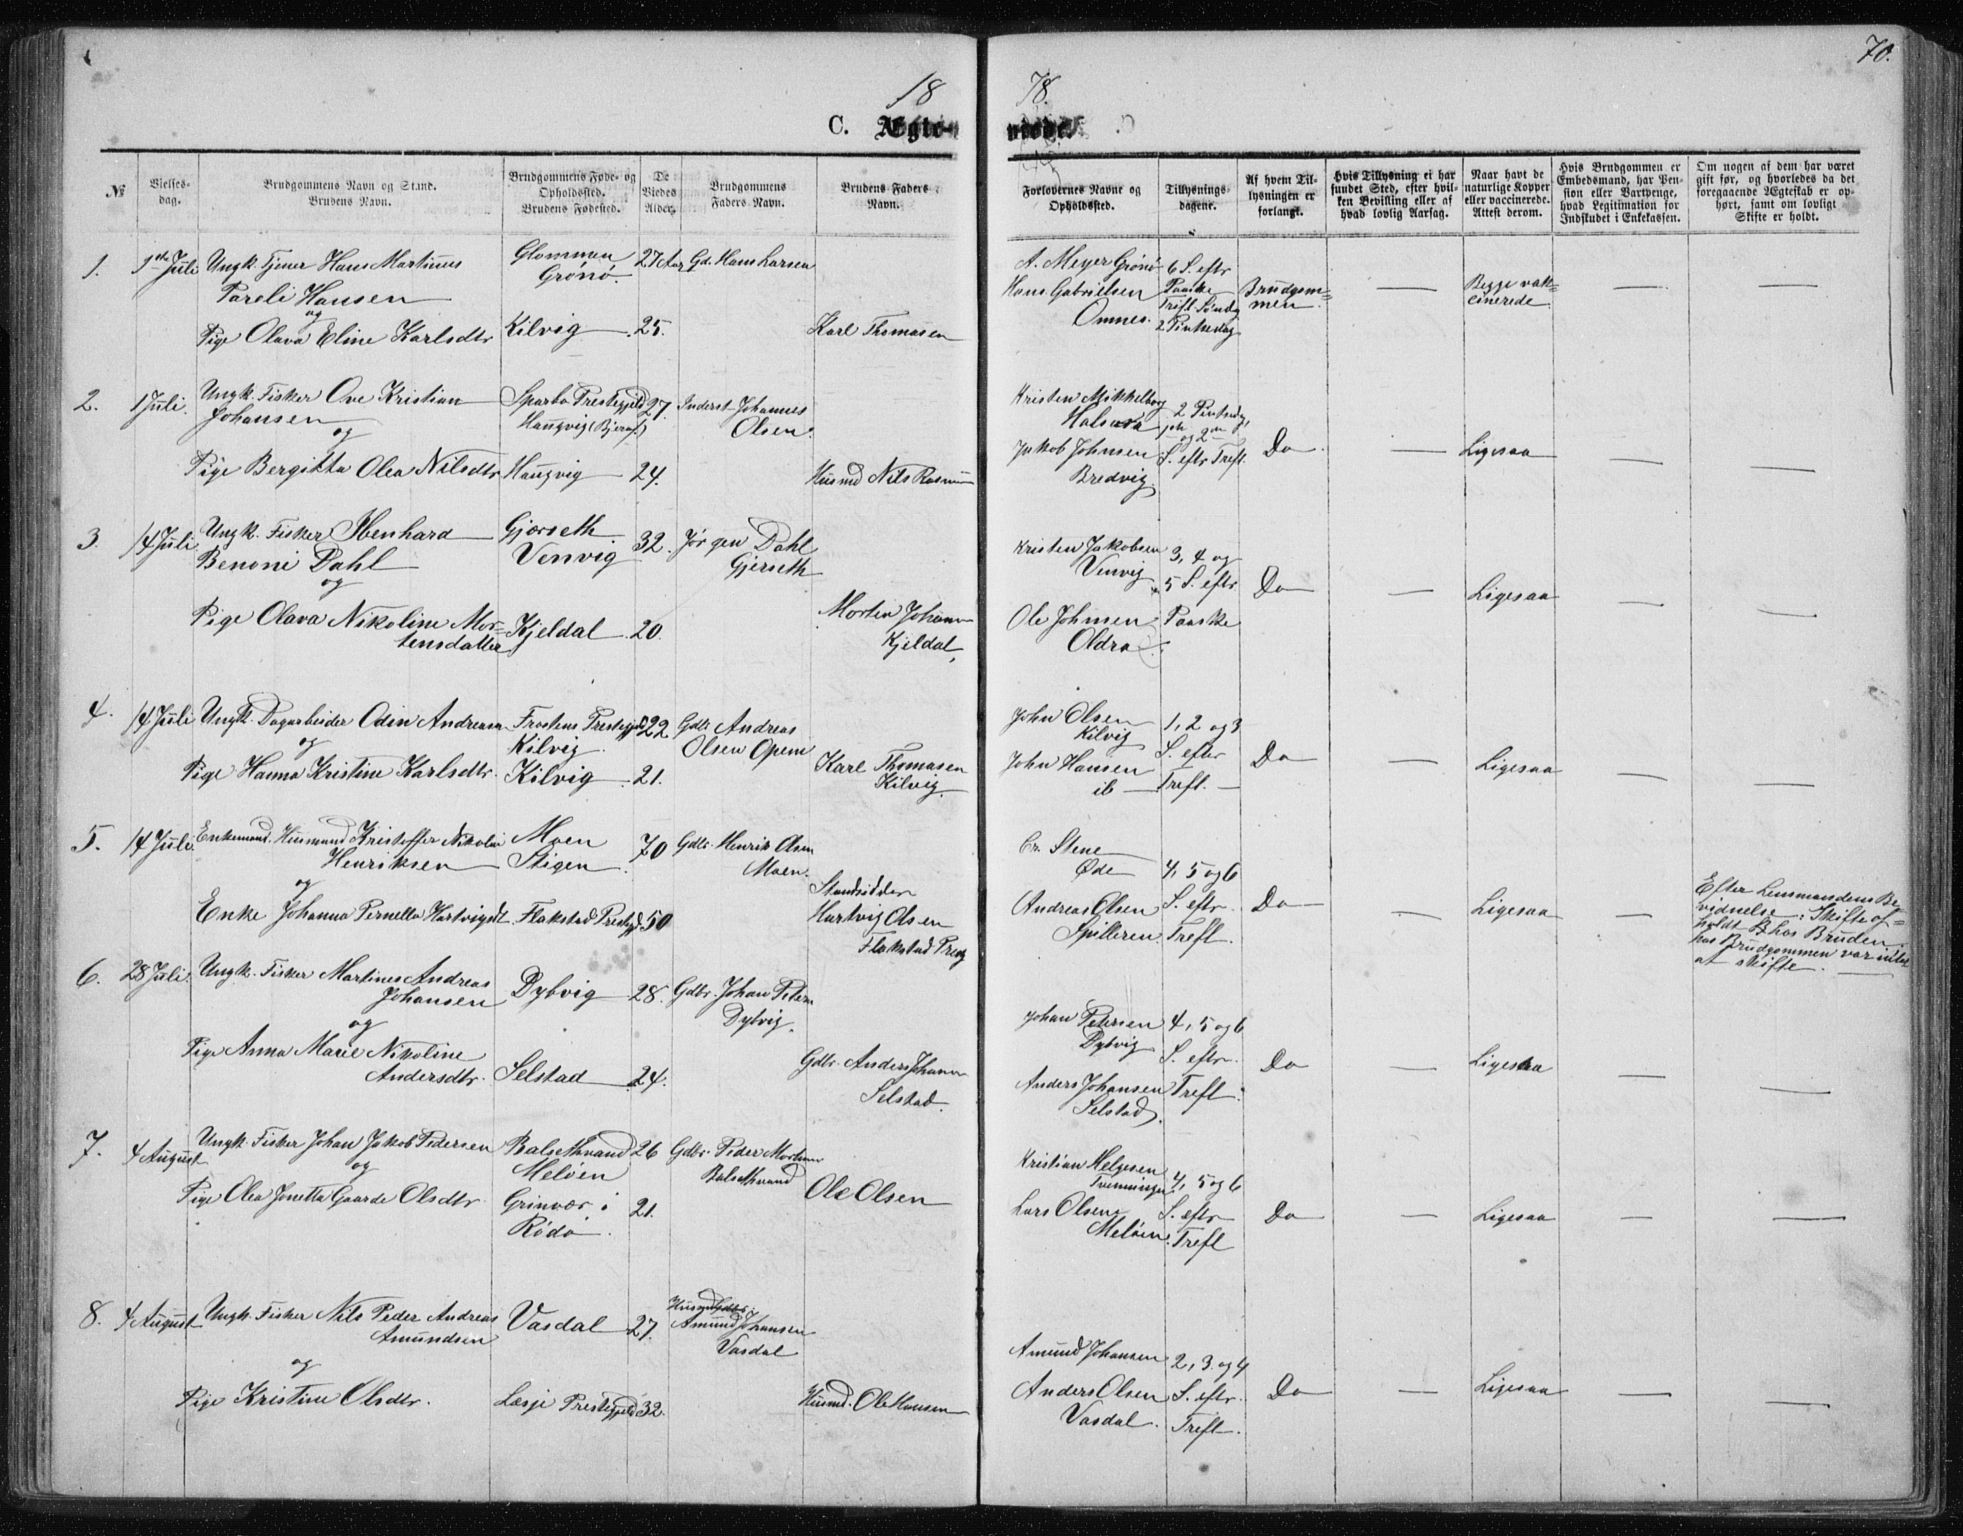 18 78.
70.
C. Ægteviede.
№
Vielses-
dag.
Brudgommens Navn og Stand.
Brudens Navn.
Brudgommens Føde- og
Opholdssted.
Brudens Fødested.
De
Viedes
Alder.
Brudgommens
Faders Navn.
Brudens Faders
Navn.
Forlovernes Navne og
Opholdssted.
Tillysnings-
dagene.
Af hvem Til-
lysningen er
forlangt.
Hvis Tillysning ei har
fundet Sted, efter hvil-
ken Bevilling eller af
hvad lovlig Aarsag.
Naar havt de
naturlige Kopper
eller vaccinerede.
Attest derom.
Hvis Brudgommen er
Embedsmand, har Pen-
sion eller Vartpenge,
hvad Legitimation for
Indskudet i Enkekassen.
Om nogen af dem har været
gift før, og hvorledes da det
foregaaende Ægteskab er op-
hørt, samt om lovligt
Skifte er holdt.
1. 1ste Juli Ungk. Tjener Hans Martinus
Pareli Hansen
og
Pige Olava Eline Karlsdtr
Glommen
Grønø.
Kilvig
27 Aar
25.
Gd. Hans Larsen
Karl Thomasen
A. Meyer Grønø
Hans Gabrielsen
Omnes.
6 S. eftr
Paaske
Treft. Søndg
2 Pintsedag
Brudgom-
men
Begge vak-
cinerede
2. 1 Juli. Ungk. Fisker Ove Kristian
Johansen
og
Pige Bergitta Olea Nilsdtr
Sparbo Prestegjeld
Haugvig
Haugvig
27.
24.
Inderst Johannes
Olsen.
Husmd Nils
Kristen Mikkelborg
Jakob Johnsen
Bredvig
2 Pintsedg,
1ste og 2den
S. eftr Treft.
Do
Ligesaa
3. 14 Juli Ungk. Fisker Ibenhard
Benoni Dahl
og
Pige Olava Nikoline Mor-
tensdatter
Gjærseth
Venvig
Kjeldal
32.
20.
Jørgen Dahl
Gjerseth
Morten Johann
Kjeldal
Kristen Jakobsen
Venvig
Ole Johnsen
Oldra
3, 4 og
5 S. eftr
Paaske
Do
Ligesaa
4. 14 Juli Ungk. Dagarbeider Odin Andreasen
og
Pige Hanna Kristine Karlsdtr.
Frostens Prestegjeld
Kilvig
Kilvig
22
21.
Gdbr. Andreas
Olsen Opem
Karl Thomasen
Kilvig
John Olsen
Kilvig
John Hansen
ib
1, 2 og 3
S. eftr
Treft.
Do
Ligesaa
5. 14 Juli. Enkemand. Husmand Kristoffer Nikolai
Henriksen
og
Enke Johanna Pernella Hartvigsdt.
Moen
Stigen
Flakstad Prestegjd
70
50
Gdbr. Henrik Olsen
Moen.
Strandsidder
Hartvig Olsen
Flakstad Prestg
Cr. Stene
Øde
Andreas Olsen
Spilleren
4, 5 og 6
S. eftr.
Treft.
Do
Ligesaa
Efter Lensmandens Be-
vidnelse: Skifte af-
holdt hos Bruden.
hos Brudgommen var intet
at skifte.
6. 28 Juli. Ungk. Fisker Martines Andreas
Johansen
og
Pige Anna Marie Nikoline
Andersdtr.
Dybvig
Selstad
28.
24.
Gdbr. Johan Petersen
Dybvig.
Gdbr. Anders Johansen
Selstad.
Johan Petersen
Dybvig
Anders Johansen
Selstad
4, 5 og 6
S. eftr.
Treft.
Do
Ligesaa
7. 4 August Ungk. Fisker Johan Jakob Pedersen
og
Pige Olea Jonetta Gaarde Olsdtr
Balsethvand
Meløen
Grinvær i
Rødø.
26
21.
Gdbr. Peder Mortensen
Balsethvand
Ole Olsen
Kristian Helgesen
Lars Olsen
Meløen
4, 5 og 6
S. eftr
Treft
Do
Ligesaa
8. 4 August Ungk. Fisker Nils Peder Andreas
Amundsen
og
Pige Kristine Olsdtr.
Vasdal
Læsje Prestegjeld
27.
32.
Husmd
Amund Johansen
Vasdal
Husmd. Ole Hansen
Amund Johansen
Anders Olsen
Vasdal.
2, 3. og 4
S. eftr.
Treft.
Do
Ligesaa